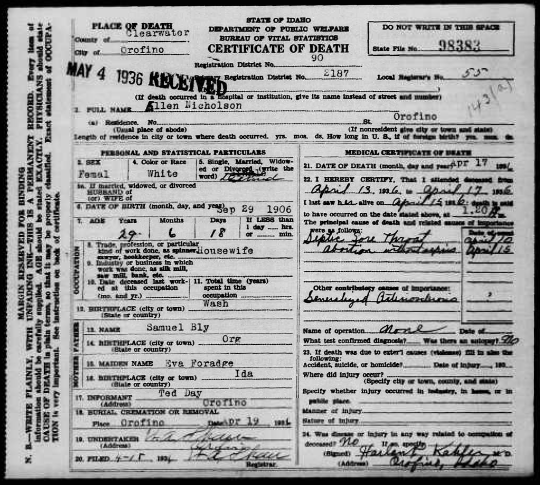 STATE OF IDAHO
DEPARTMENT OF PUBLIC WELFARE
BUREAU OF VITAL STATISTICS
CERTIFICATE OF DEATH
DO NOT WRITE IN THIS SPACE
State File No. 98383
PLACE OF DEATH
County of Clearwater
City of Orofino
Registration District No. 90
MAY 4 1936 RECEIVED
Registration District No. 2187
Local Registrar's No. 55
(If death occurred in a hospital or institution, give its name instead of street and number)
2. FULL NAME Ellen Nicholson
(a) Residence. No. St. Orofino
(Usual place of abode) (If nonresident give city or town and state)
Length of residence in city or town where death occurred. yrs. mos. ds. How long in U. S., if of foreign birth? yrs. mos. da.
PERSONAL AND STATISTICAL PARTICULARS
3. SEX Femal
4. Color or Race White
5. Single, Married, Widowed or Divorced (write the word)
5a. If married, widowed, or divorced
HUSBAND of
(or) WIFE of
6. DATE OF BIRTH (month, day and year) Sep 29 1906
7. AGE Years 29 Months 6 Days 18 If LESS than 1 day hrs. or min.
OCCUPATION
8. Trade, profession, or particular kind of work done, as spinner, sawyer, bookkeeper, etc. Housewife
9. Industry or business in which work was done, as silk mill, saw mill, bank, etc.
10. Date deceased last worked at this occupation (mo. and yr.)
11. Total time (years) spent in this occupation
12. BIRTHPLACE (city or town) Wash
(State or country)
FATHER
13. NAME Samuel Bly
14. BIRTHPLACE (city or town) Org
(State or country)
MOTHER
15. MAIDEN NAME Eva Foradge
16. BIRTHPLACE (city or town) Ida
(State or country)
17. INFORMANT Ted Day
(Address) Orofino
18. BURIAL CREMATION OR REMOVAL
Place Orofino Date Apr 19 1936
19. UNDERTAKER
(Address)
20. FILED 4-18 1936
Registrar.
MEDICAL CERTIFICATE OF DEATH
21. DATE OF DEATH (month, day, and year) Apr 17 1936
22. I HEREBY CERTIFY, That I attended deceased from
April 13, 1936, to April 17, 1936
I last saw h alive on April 15, 1936; death is said
to have occurred on the date stated above, at 1.20 A m.
The principal cause of death and related causes of importance were as follows:
Septic Sore Throat April 10
Abortion April 15
Other contributory causes of importance:
Generalized
Name of operation None Date of
What test confirmed diagnosis? Was there an autopsy? No
23. If death was due to external causes (violence) fill in also the following:
Accident, suicide, or homicide? Date of injury 193
Where did injury occur?
(Specify city or town, county, and State)
Specify whether injury occurred in industry, in home, or in public place
Manner of injury
Nature of injury
24. Was disease or injury in any way related to occupation of deceased? No If so, specify
(Signed) M. D.
(Address) Orofino, Idaho
MARGIN RESERVED FOR BINDING
N. B.—WRITE PLAINLY, WITH UNFADING INK—THIS IS A PERMANENT RECORD. Every item of information should be carefully supplied. AGE should be stated EXACTLY. PHYSICIANS should state CAUSE OF DEATH in plain terms, so that it may be properly classified. Exact statement of OCCUPATION is very important. See instructions on back of certificate.